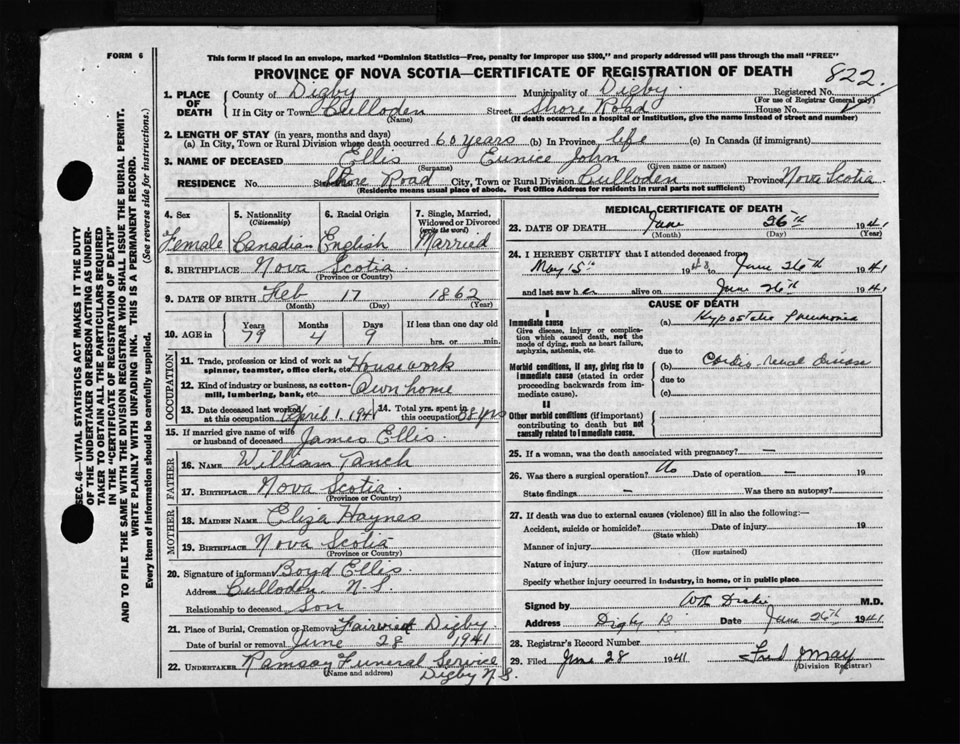 FORM 6
This form if placed in an envelope, marked "Dominion Statistics—Free, penalty for improper use $300," and properly addressed will pass through the mail "FREE"
PROVINCE OF NOVA SCOTIA—CERTIFICATE OF REGISTRATION OF DEATH
822
SEC. 46—VITAL STATISTICS ACT MAKES IT THE DUTY
OF THE UNDERTAKER OR PERSON ACTING AS UNDER-
TAKER TO OBTAIN ALL THE PARTICULARS REQUIRED
IN THE "CERTIFICATE OF REGISTRATION OF DEATH"
AND TO FILE THE SAME WITH THE DIVISION REGISTRAR WHO SHALL ISSUE THE BURIAL PERMIT.
WRITE PLAINLY WITH UNFADING INK. THIS IS A PERMANENT RECORD.
Every item of information should be carefully supplied. (See reverse side for instructions.)
1. PLACE OF DEATH
County of Digby Municipality of Digby Registered No.
(For use of Registrar General only)
If in City or Town Culloden Street Shore Road House No.
(Name) (If death occurred in a hospital or institution, give the name instead of street and number)
2. LENGTH OF STAY (in years, months and days)
(a) In City, Town or Rural Division where death occurred 60 years (b) In Province life (c) In Canada (if immigrant)
3. NAME OF DECEASED Ellis Eunice John
(Surname) (Given name or names)
RESIDENCE No. Street Shore Road City, Town or Rural Division Culloden Province Nova Scotia
(Residence means usual place of abode. Post Office Address for residents in rural parts not sufficient)
4. Sex
Female
5. Nationality
(Citizenship)
Canadian
6. Racial Origin
English
7. Single, Married,
Widowed or Divorced
(write the word)
Married
8. BIRTHPLACE Nova Scotia
(Province or Country)
9. DATE OF BIRTH Feb 17 1862
(Month) (Day) (Year)
10. AGE in
Years Months Days If less than one day old
79 4 9 hrs. or min.
OCCUPATION
11. Trade, profession or kind of work as
spinner, teamster, office clerk, etc. House work
12. Kind of industry or business, as cotton-
mill, lumbering, bank, etc. Own home
13. Date deceased last worked
at this occupation April 1. 1941
14. Total yrs. spent in
this occupation 58 yrs
15. If married give name of wife
or husband of deceased James Ellis.
FATHER
16. NAME William
17. BIRTHPLACE Nova Scotia
(Province or Country)
MOTHER
18. MAIDEN NAME Eliza Haynes
19. BIRTHPLACE Nova Scotia
(Province or Country)
20. Signature of informant Boyd Ellis.
Address Culloden N.S.
Relationship to deceased Son
21. Place of Burial, Cremation or Removal Digby.
Date of burial or removal June 28 1941
22. UNDERTAKER Ramsay Funeral Service
(Name and address) Digby N.S.
MEDICAL CERTIFICATE OF DEATH
23. DATE OF DEATH June 26th 1941
(Month) (Day) (Year)
24. I HEREBY CERTIFY that I attended deceased from
May 15th 19 to June 26th 1941
and last saw her alive on June 26th 1941
CAUSE OF DEATH
I
Immediate cause
Give disease, injury or complica-
tion which caused death, not the
mode of dying, such as heart failure,
asphyxia, asthenia, etc.
(a) Hypostatic Pneumonia
due to
Morbid conditions, if any, giving rise to
immediate cause (stated in order
proceeding backwards from im-
mediate cause).
(b) Cardio renal disease
due to
(c)
II
Other morbid conditions (if important)
contributing to death but not
causally related to immediate cause.
25. If a woman, was the death associated with pregnancy? —
26. Was there a surgical operation? No Date of operation — 19
State findings — Was there an autopsy?
27. If death was due to external causes (violence) fill in also the following:—
Accident, suicide or homicide? Date of injury 19
(State which)
Manner of injury
(How sustained)
Nature of injury
Specify whether injury occurred in industry, in home, or in public place
Signed by M.D.
Address Digby Date June 26th 1941
28. Registrar's Record Number
29. Filed June 28 1941 Fred J May
(Division Registrar)